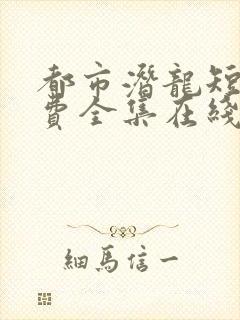 都市潛龍短
費全集在綫
細馬信一